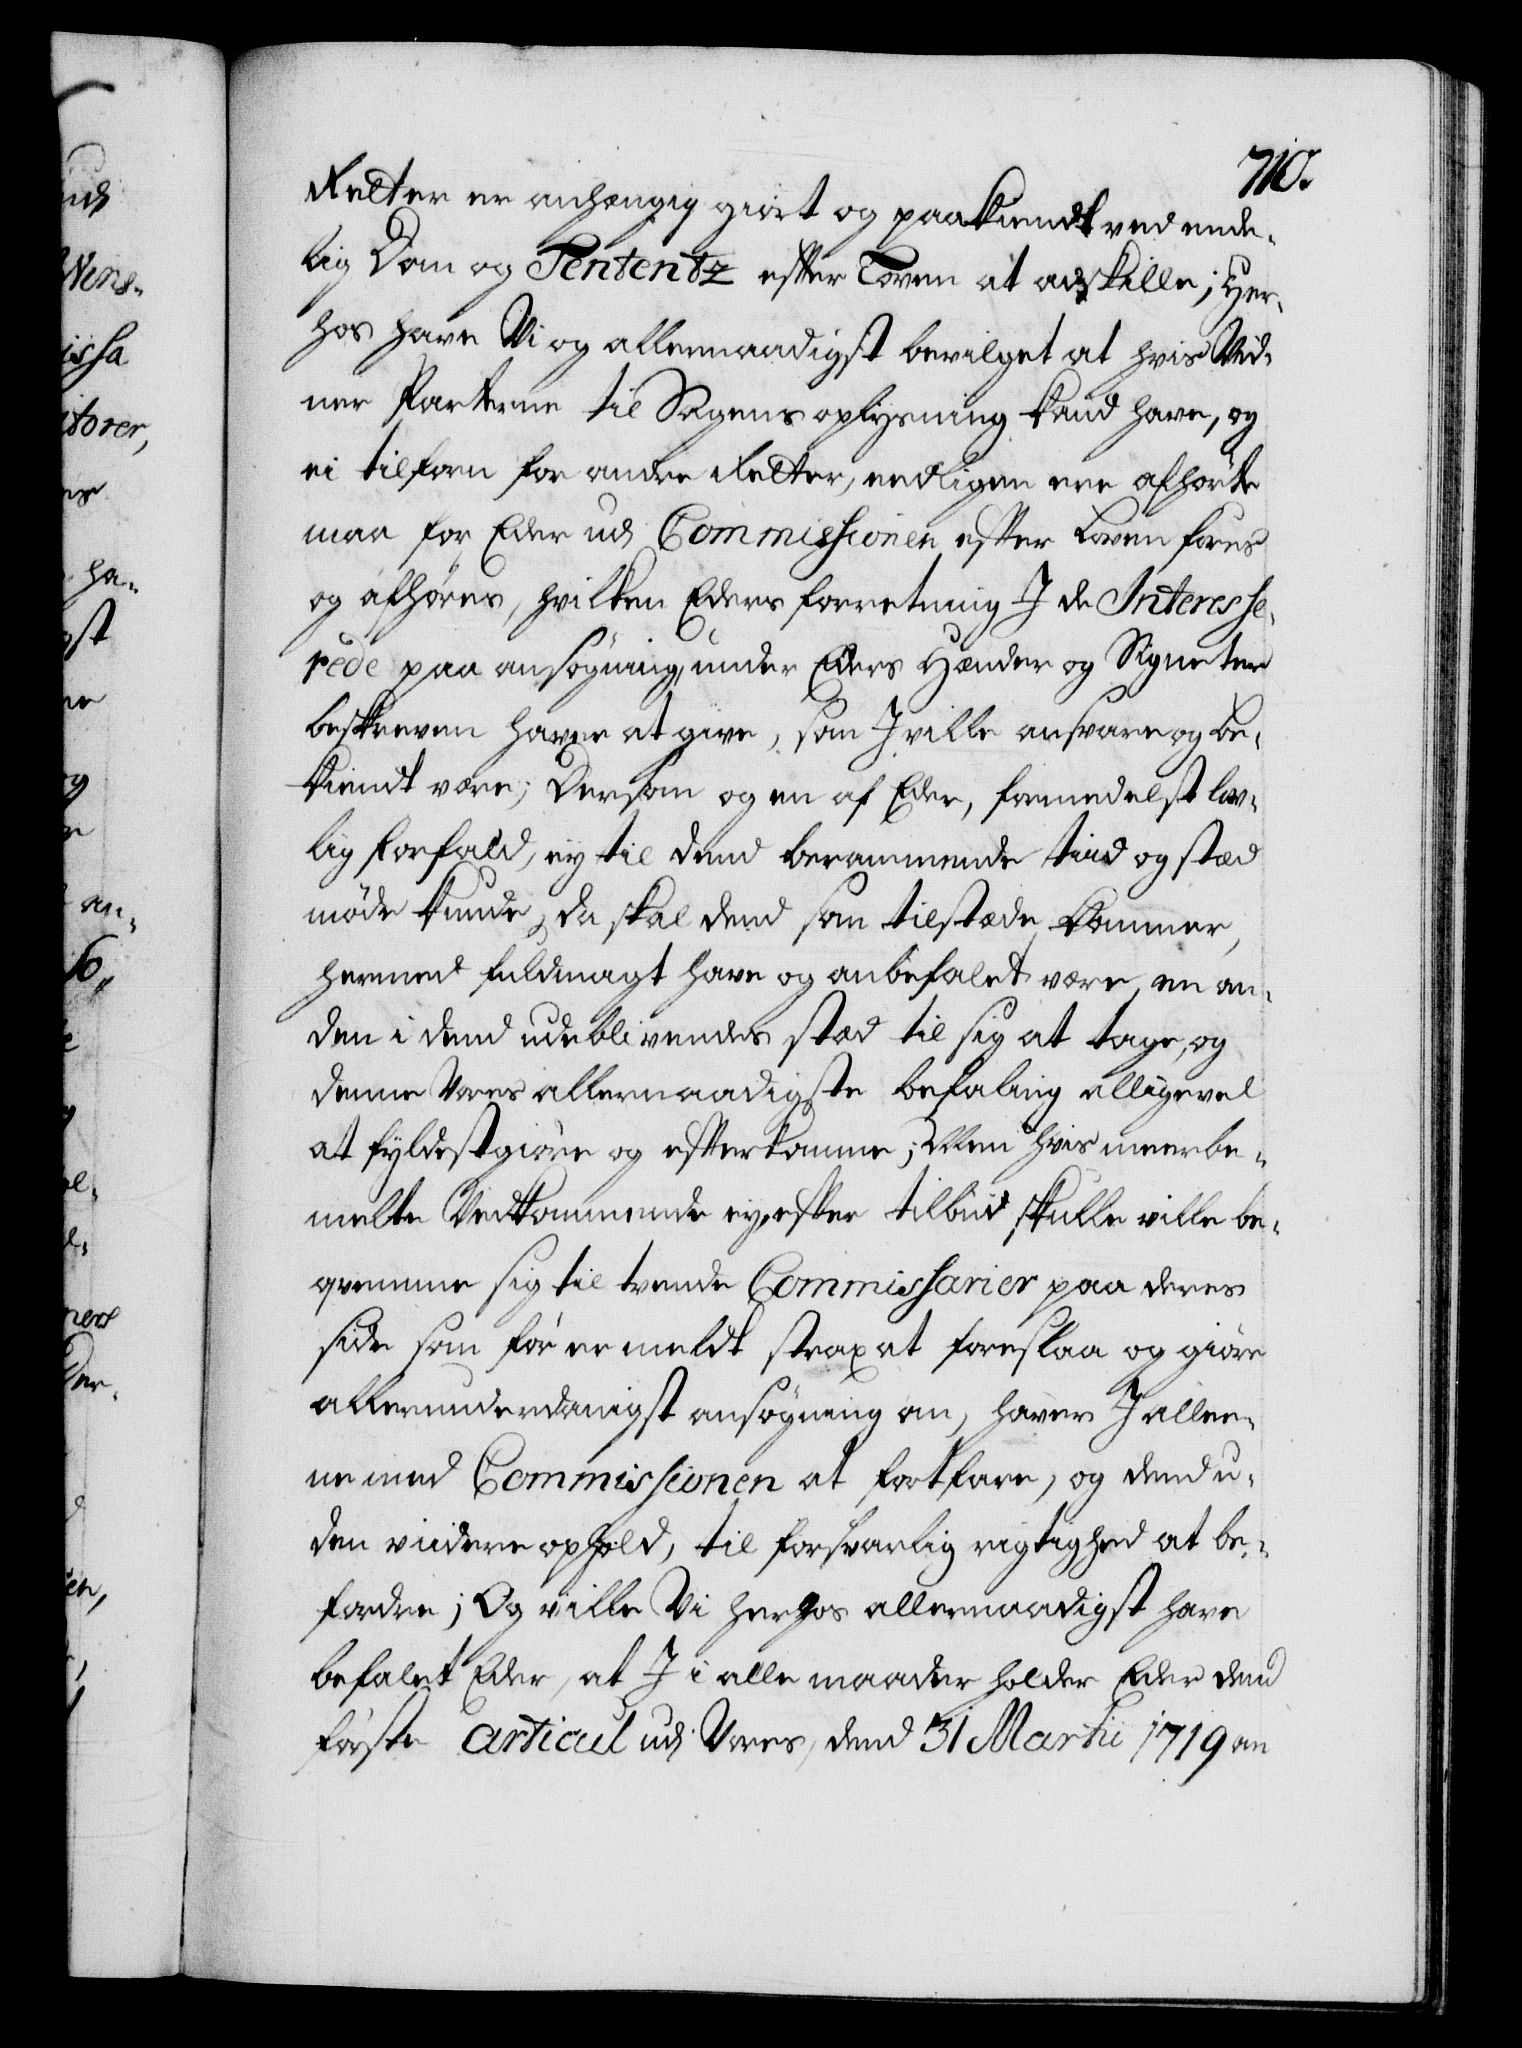 710.
Retter er anhængig giort og paakiendt ved ende-
lig Dom og Sententz efter Loven at adskille; Her-
hos have Vi og allernaadigst bevilget at hvis Vid-
ner Parterne til Sagens oplysning kand have, og
ei tilforn for andre Retter, eedligen ere afhørte
maa for Eder udj Commissionen efter Loven føres
og afhøres, hvilken Eders forretning J de Interesse-
rede paa ansøgning, under Eders Hænder og Signeter
beskreven haver at give, som J ville ansvare og be-
kiendt være; Dersom og en af Eder, formedelst lov-
lig forfald, ey til dend berammende tiid og stæd
møde kunde, da skal dend som tilstæde kommer,
hermed fuldmagt have og anbefalet være, en an-
den i dend udeblivendes stæd til sig at tage, og
denne Vores allernaadigste befaling alligevel
at fyldestgiøre og efterkomme; Men hvis meerbe-
melte Vedkommende ey, efter tilbud skulle ville be-
qvemme sig til tvende Commissarier paa deres
side som før er meldt strax at foreslaa og giøre
allerunderdanigst ansøgning om, haver J allee-
ne med Commissionen at fortfare, og dend u-
den viidere ophold, til forsvarlig rigtighed at be-
fordre; Og ville Vi herhos allernaadigst have
befalet Eder, at J i alle maader holder Eder dend
første Articul udj Vores, dend 31 Martii 1719 om